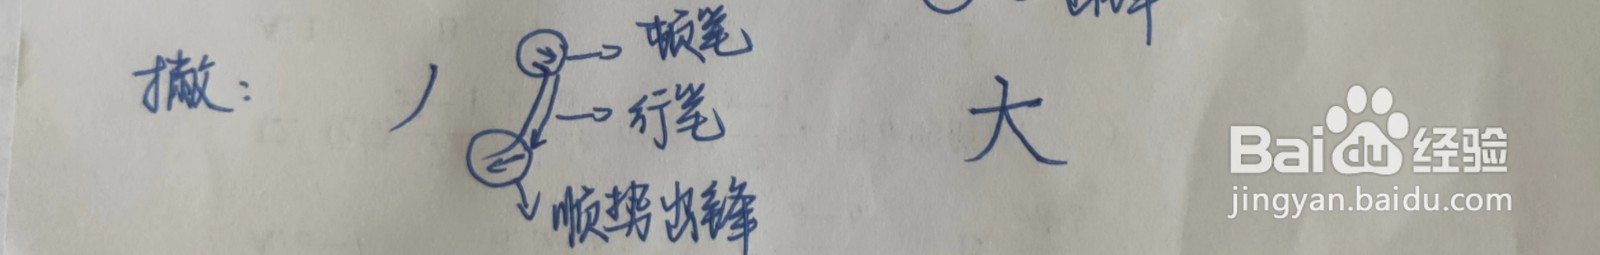 撇：丿 顿笔 大
行笔
顺势出锋
Baidu经验
jingyan.baidu.com